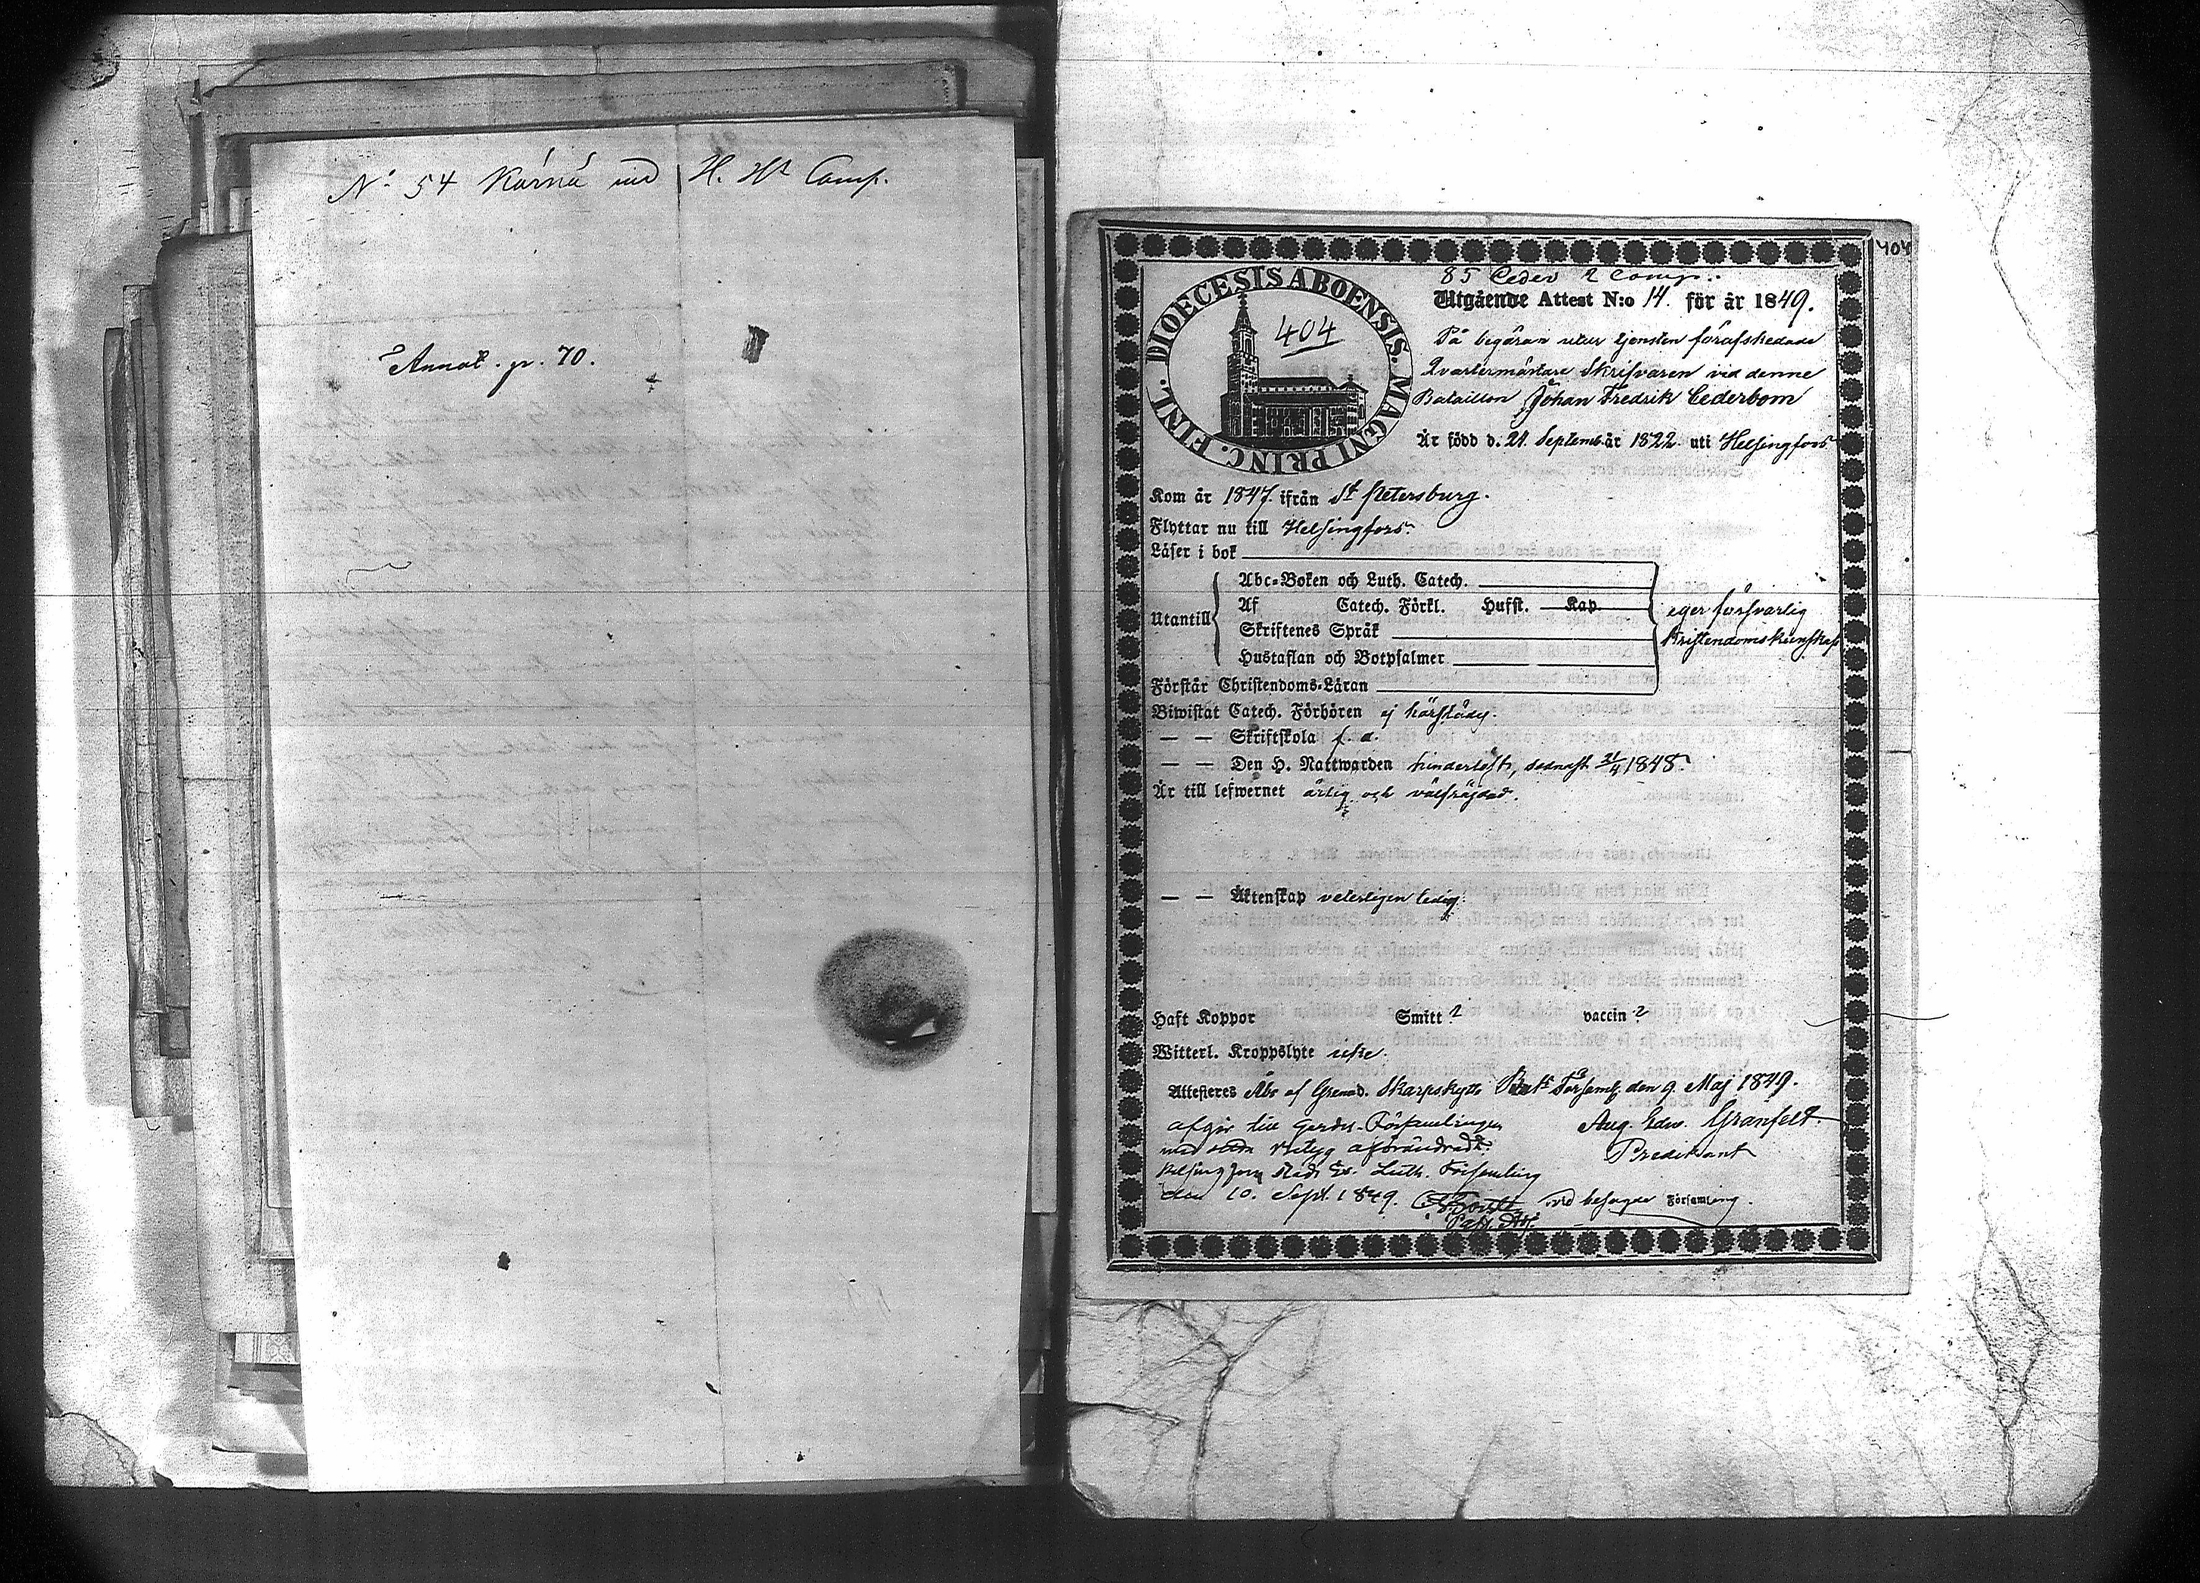 No 54 Kärnä vid H. Ht Comp.
Annot. p. 70.
404
85 Ceder 2 Comp.
DIOECESIS ABOENSIS. MAGNI PRINC. FINL.
404
Utgående Attest N:o 14. för år 1849.
På begäran utur tjensten förafskedade
Qvartermästare Skrifvaren vid denne
Bataillon Johan Fredrik Cederbom
Är född d. 21. Septemb. år 1822. uti Helsingfors
Kom år 1847. ifrån St Petersburg.
Flyttar nu till Helsingfors.
Läser i bok
Utantill
Abc-Boken och Luth. Catech.
Af Catech. Förkl. Hufst. Kap.
Skriftenes Språk
Hustaflan och Botpsalmer
eger försvarlig
Kristendomskunskap
Förstår Christendoms-Läran
Biwistat Catech. Förhören ej härstädes.
— — Skriftskola f. d.
— — Den H. Nattwarden hinderlöst, sednast 21/4 1848.
Är till lefwernet ärlig och välfräjdad.
— — Äktenskap veterligen ledig.
Haft Koppor Smitt ? vaccin ?
Witterl. Kroppslyte icke.
Attesteres Åbo af Grenad. Skarpskytte Bat:s Församl. den 9. Maj 1849.
Aug. Edw. Granfelt.
Predikant
vid besagde Församling.
afgår till GarDes-Församlingen
med detta Betyg oförändradt.
Helsingfors Stads Ev. Luth. Församling
den 10. Sept. 1849.